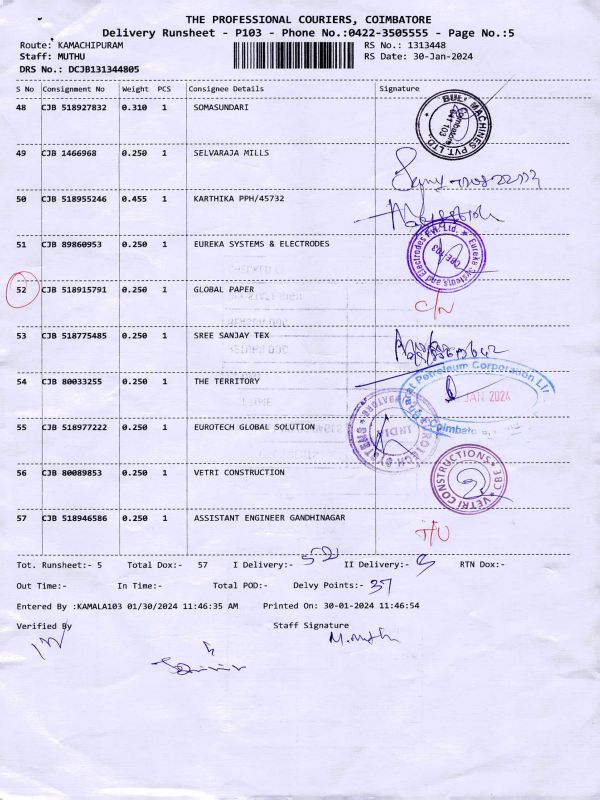 THE PROFESSIONAL COURIERS, COIMBATORE
Delivery Runsheet - P103 - Phone No.:0422-3505555 - Page No.:5
Route: KAMACHIPURAM RS No.: 1313448
Staff: MUTHU RS Date: 30-Jan-2024
DRS No.: DCJB131344805
S No Consignment No Weight PCS Consignee Details Signature
48 CJB 518927832 0.310 1 SOMASUNDARI
49 CJB 1466968 0.250 1 SELVARAJA MILLS
50 CJB 518955246 0.455 1 KARTHIKA PPH/45732
51 CJB 89860953 0.250 1 EUREKA SYSTEMS & ELECTRODES
52 CJB 518915791 0.250 1 GLOBAL PAPER C/N
53 CJB 518775485 0.250 1 SREE SANJAY TEX
54 CJB 80033255 0.250 1 THE TERRITORY
Petroleum Corporation
JAN 2024
Coimbatore
55 CJB 518977222 0.250 1 EUROTECH GLOBAL SOLUTION
INDIA
56 CJB 80089853 0.250 1 VETRI CONSTRUCTION
VETRI CONSTRUCTIONS CBE
57 CJB 518946586 0.250 1 ASSISTANT ENGINEER GANDHINAGAR
Tot. Runsheet:- 5 Total Dox:- 57 I Delivery:- II Delivery:- RTN Dox:-
Out Time:- In Time:- Total POD:- Delvy Points:- 37
Entered By :KAMALA103 01/30/2024 11:46:35 AM Printed On: 30-01-2024 11:46:54
Verified By Staff Signature